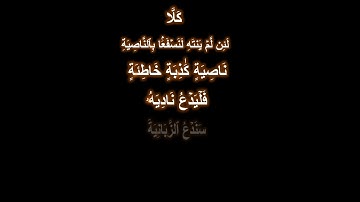 كَلَّا
لَئِن لَّمْ يَنتَهِ لَنَسْفَعًا بِٱلنَّاصِيَةِ
نَاصِيَةٍ كَٰذِبَةٍ خَاطِئَةٍ
فَلْيَدْعُ نَادِيَهُۥ
سَنَدْعُ ٱلزَّبَانِيَةَ